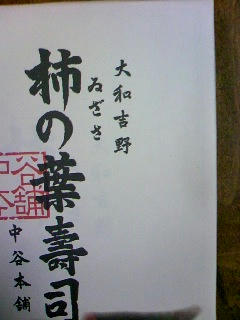 大和吉野
ゐざさ
柿の葉壽司
中谷本舗